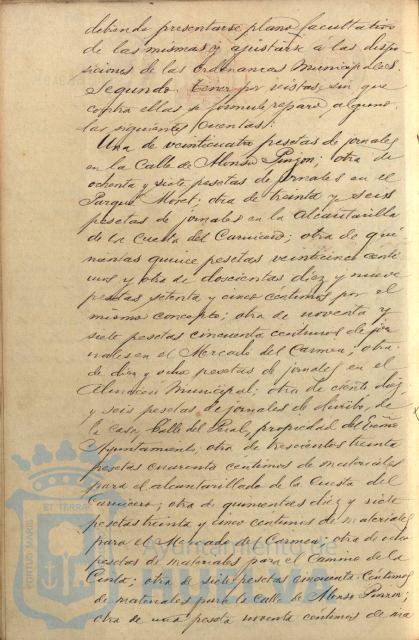 debiendo presentarse plano facultativo
de las mismas y ajustarse a las dispo
siciones de las Ordenanzas Municipales.
Segundo. Tener por vistas, sin que
contra ellas se formule reparo alguno
las siguientes cuentas:
Una de veinticuatro pesetas de jornales
en la Calle de Alonso Pinzon; otra de
ochenta y siete pesetas de jornales en el
Parque Moret; otra de treinta y seis
pesetas de jornales en la Alcantarilla
de la Cuesta del Carnicero; otra de qui
nientas quince pesetas veinticinco centi
mos y otra de doscientas diez y nueve
pesetas setenta y cinco centimos por el
mismo concepto; otra de noventa y
siete pesetas cincuenta centimos de jor
nales en el Mercado del Carmen; otra
de diez y ocho pesetas de jornales en el
Almacen Municipal; otra de ciento diez
y seis pesetas de jornales de derribo, de
la casa, Calle del propiedad del Excmo
Ayuntamiento, otra de trescientas treinta
pesetas cuarenta centimos de materiales
para el alcantarillado de la Cuesta del
Carnicero; otra de quinientas diez y siete
pesetas treinta y cinco centimos de materiales
para el Mercado del Carmen; otra de ocho
pesetas de materiales para el Camino de la
Cinta; otra de siete pesetas cincuenta centimos
de materiales para la Calle de Alonso Pinzon;
otra de una peseta noventa centimos de
Ayuntamiento de
HUELVA
PORTUS MARIS ET TERRAE